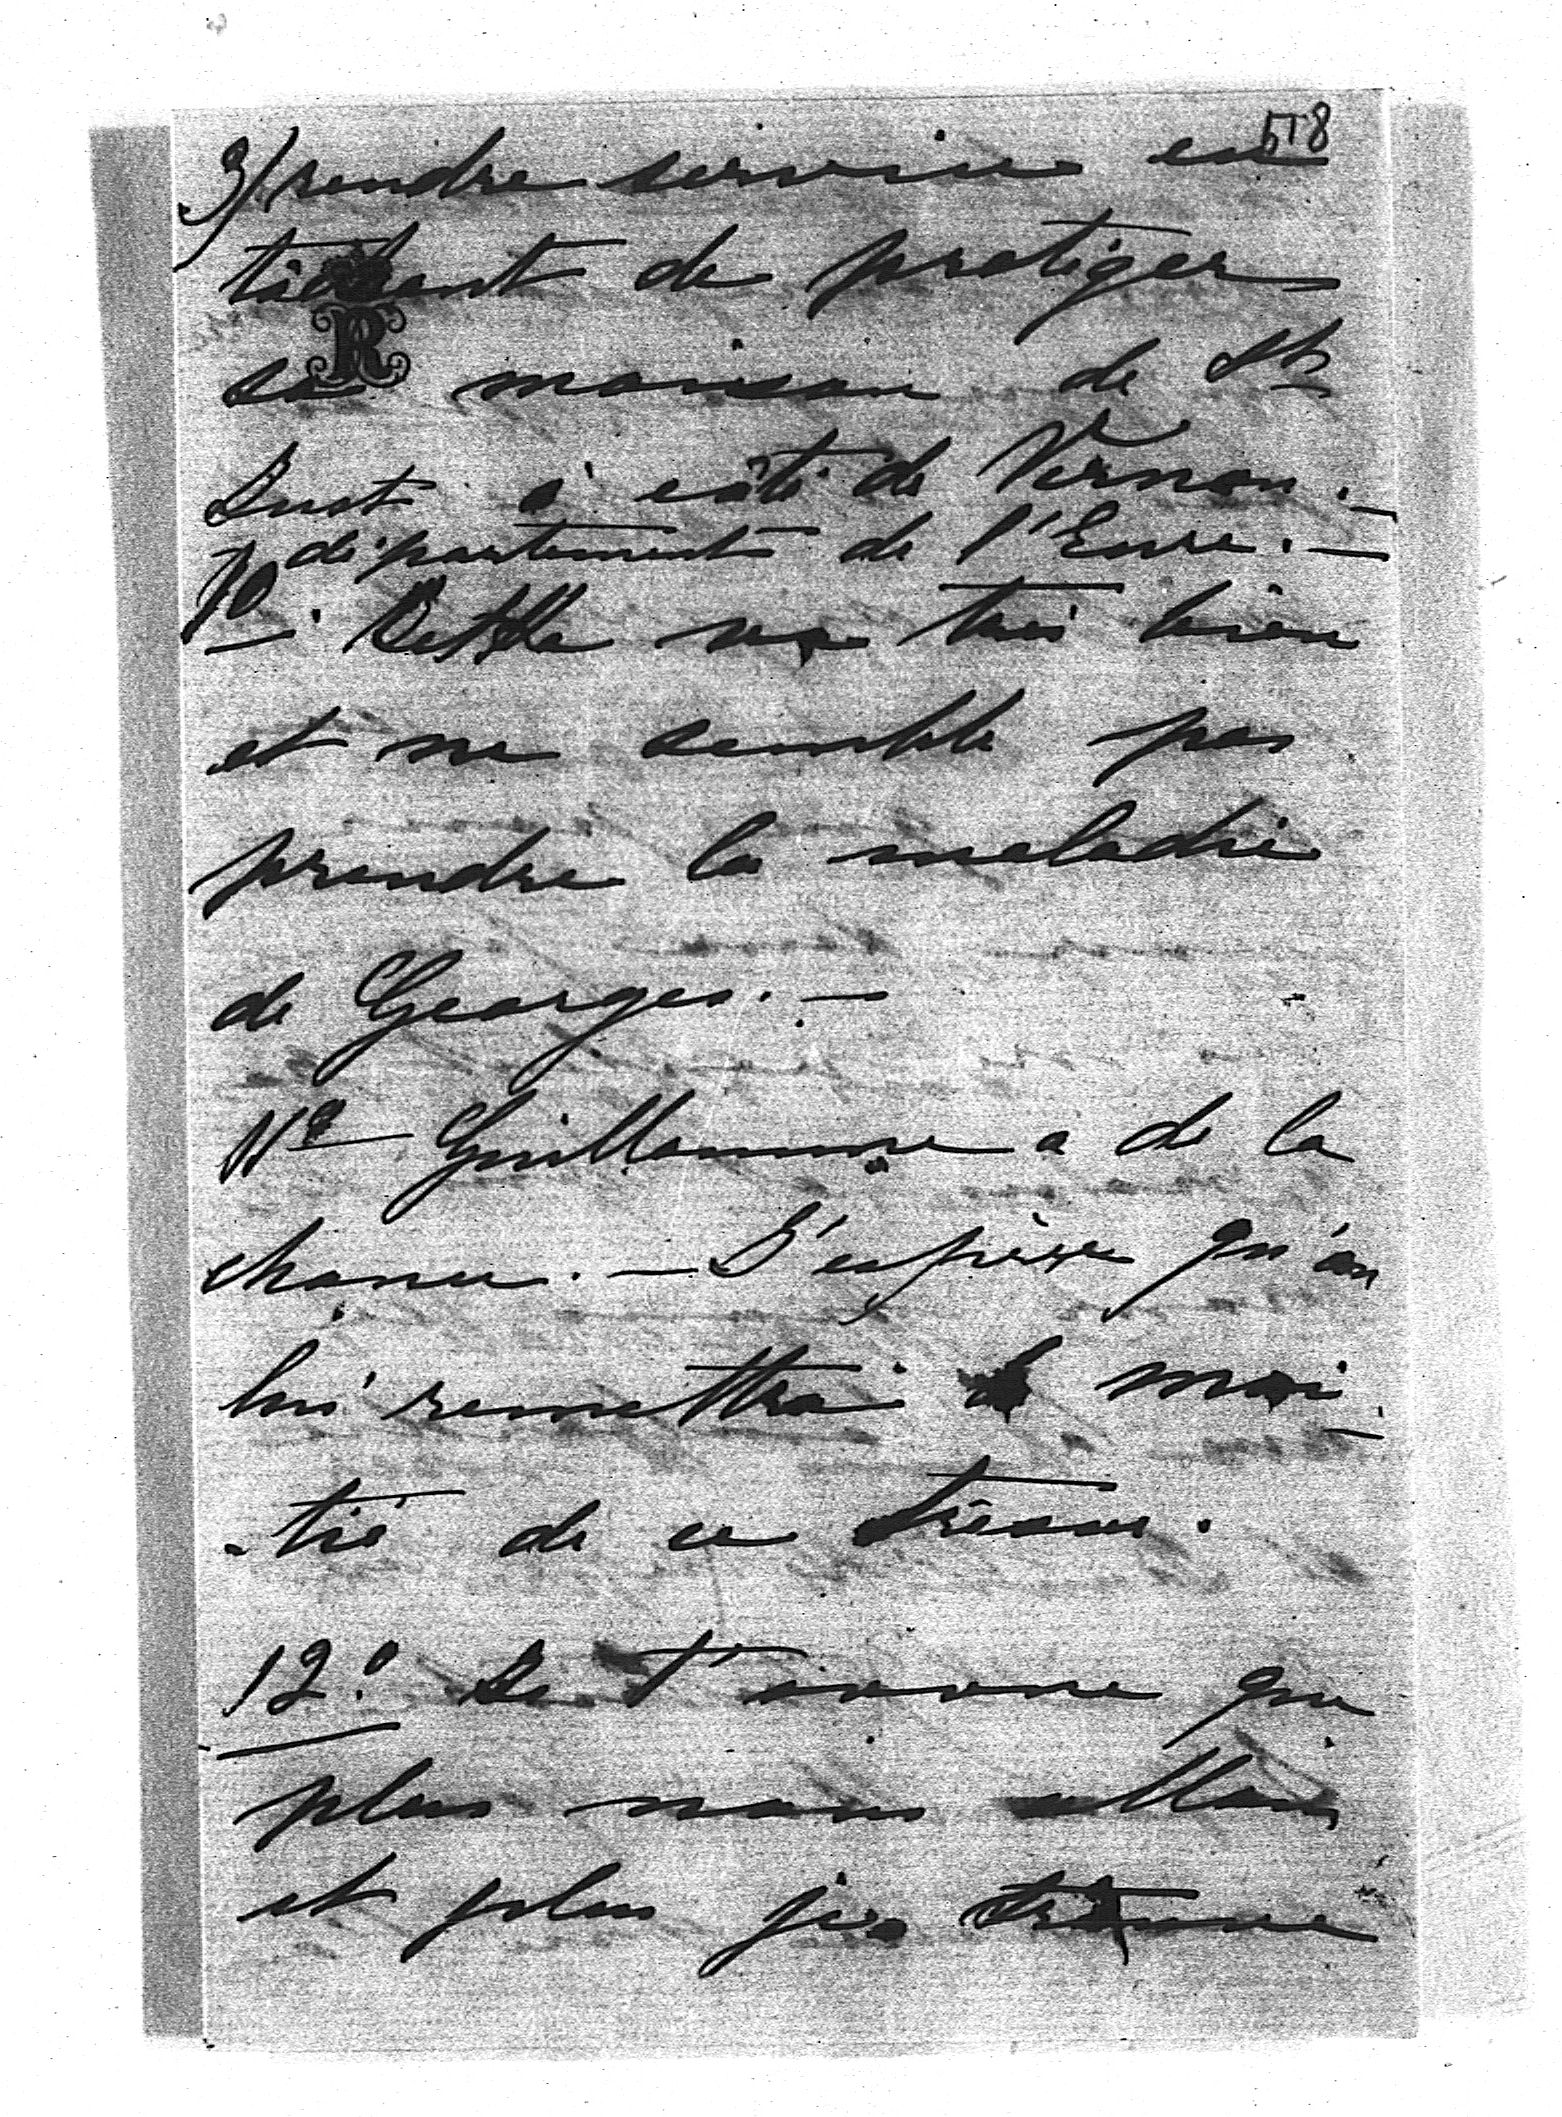 518
3/ rendre service en
tâchant de protéger
R
sa maison de St
Just à côté de Vernon. —
département de l'Eure. —
10. Bettle va très bien
et ne semble pas
prendre la maladie
de Georges. —
11º Guillaume a de la
chance. — J'espère qu'on
lui remettra la moi-
-tié de ce trésor.
12.º Je t'avoue que
plus nous allons
et plus je trouve